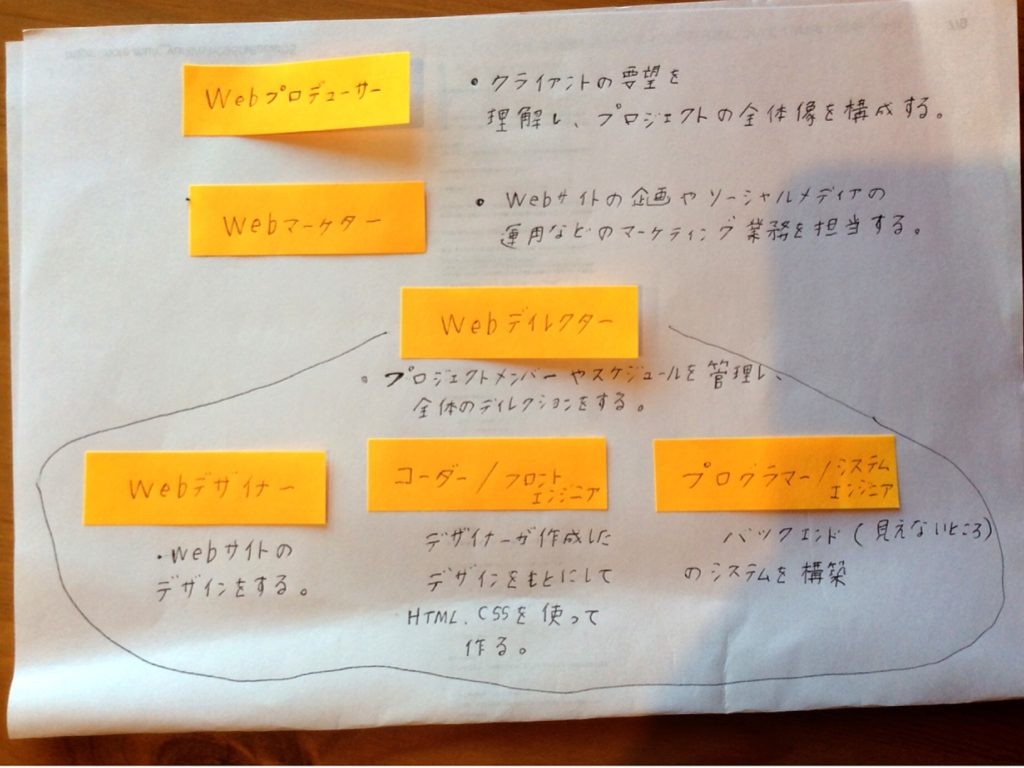 Webプロデューサー
・クライアントの要望を
理解し、プロジェクトの全体像を構成する。
Webマーケター
・Webサイトの企画やソーシャルメディアの
運用などのマーケティング業務を担当する。
Webディレクター
・プロジェクトメンバーやスケジュールを管理し、
全体のディレクションをする。
Webデザイナー
・Webサイトの
デザインをする。
コーダー/フロント
エンジニア
デザイナーが作成した
デザインをもとにして
HTML、CSSを使って
作る。
プログラマー/システム
エンジニア
バックエンド(見えないところ)
のシステムを構築